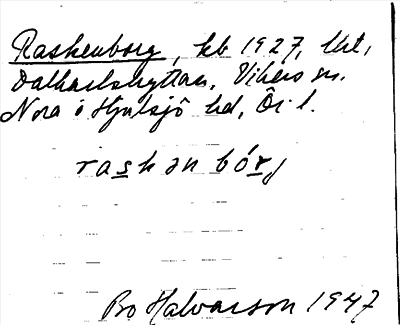 Raskenborg, kb 1927, lht,
Dalkarlshyttan, Vikers sn.
Nora o Hjulsjö hd, Ör. l.
raskən bórj
Bo Halvarson 1947